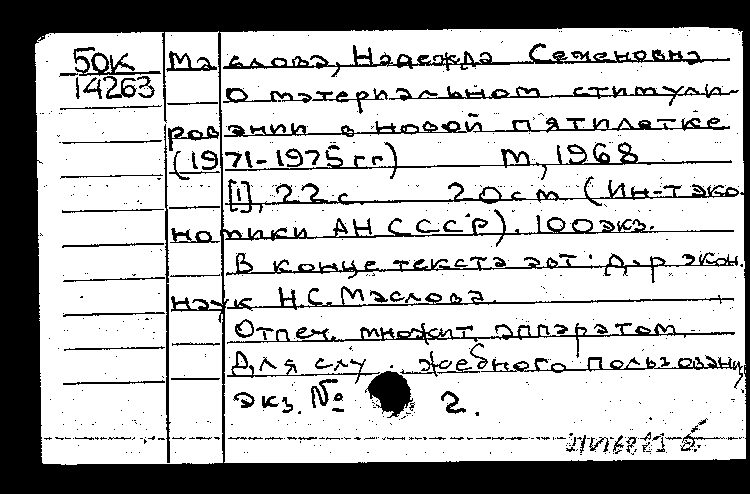 50К Маслова, Надежда Семеновна
14263 О материальном стимули-
ровании в новой пятилетке
(1971-1975 гг) М., 1968
[1], 22 с. 20 см (Ин-т эко-
номики АН СССР). 100 экз.
В конце текста авт: д-р экон.
наук Н.С. Маслова.
Отпеч. множит. аппаратом.
Для слу . жебного пользовани
экз. № 2.